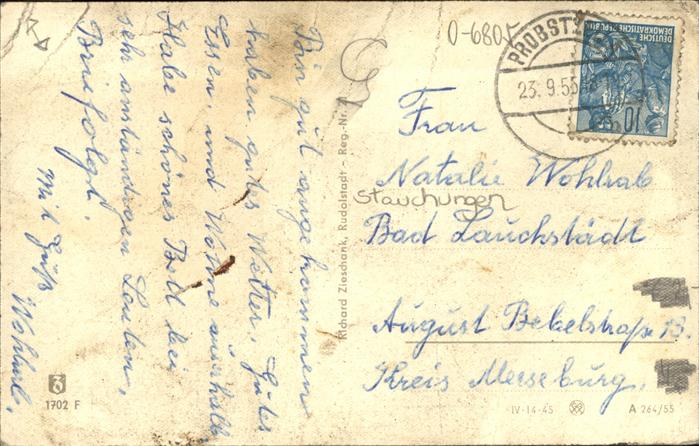 Bin gut angekommen
haben gutes Wetter. Gutes
Essen, und Wohne außerhalb.
Habe schönes Bett bei
sehr anständigen Leuten,
Brief folgt.
Mit Gruß
Wohlrab.
1702 F
Richard Zieschank, Rudolstadt - Reg.-Nr.
0-6805
PROBSTZELLA
23.9.55
DEUTSCHE
DEMOKRATISCHE REPUBLIK
10
Frau
Natalie Wohlrab
Stauchungen
Bad Lauchstädt
August Bebelstraße 13
Kreis Merseburg.
IV-14-45
A 264/55